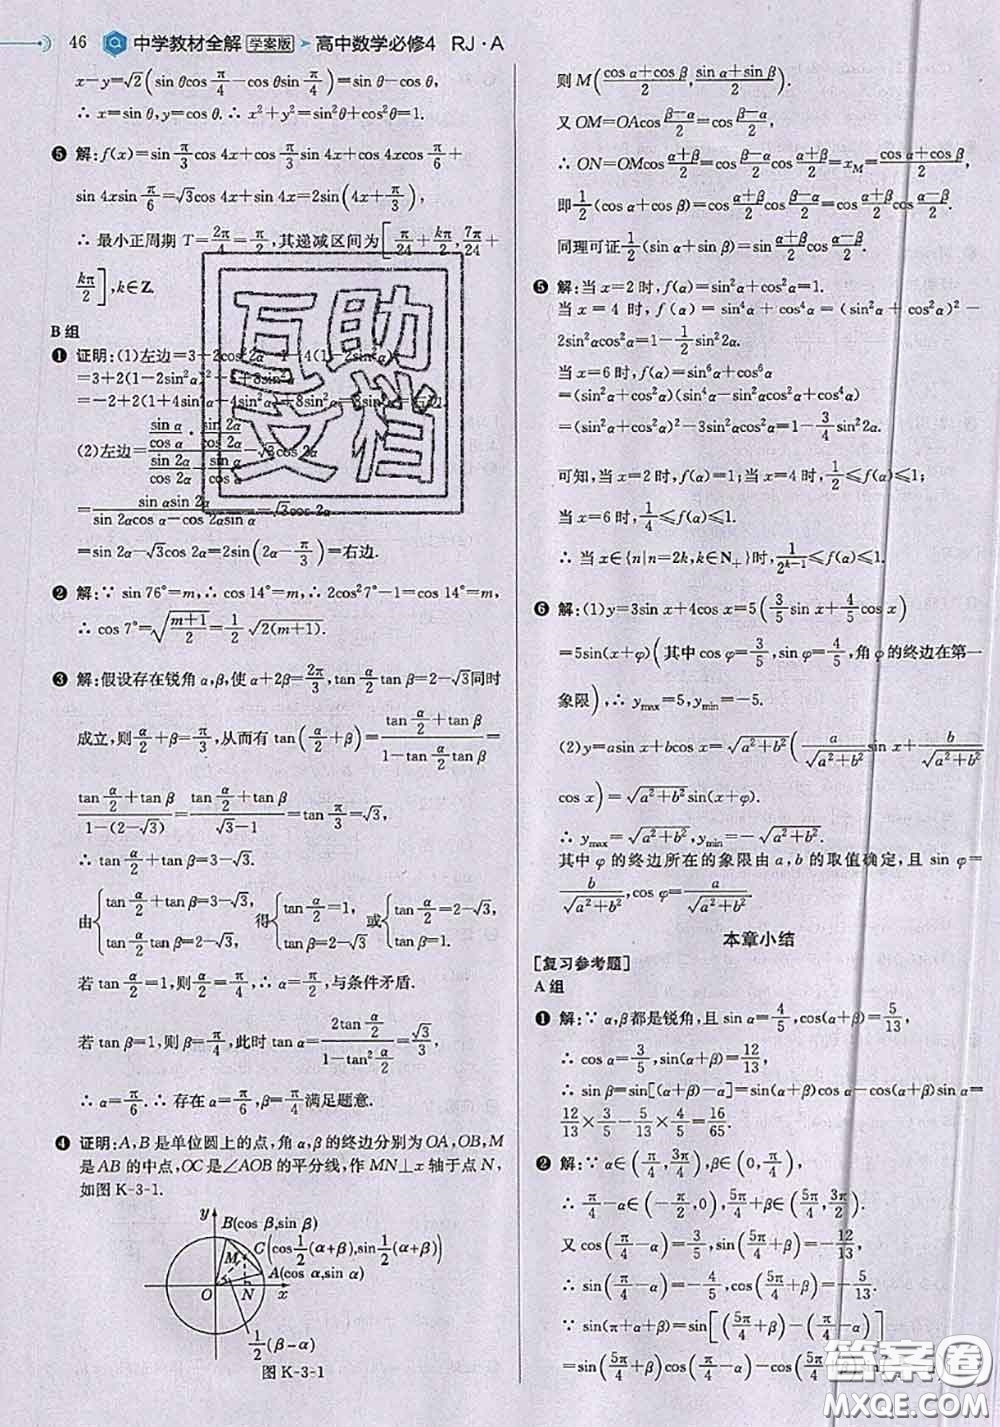 46 中学教材全解 学案版 ➤ 高中数学必修4 RJ·A
x−y=√2(sin θcos π/4−cos θsin π/4),
∴ x=sin θ,y=cos θ.∴ x²+y²=sin²θ+cos²θ=1.
❺ 解:f(x)=sin π/3 cos 4x+cos π/3 sin 4x+cos 4xcos π/6+
sin 4xsin π/6=√3cos 4x+sin 4x=2sin(4x+π/3),
∴ 最小正周期 T=2π/4=π/2,其递减区间为[π/24+kπ/2,7π/24+
kπ/2],k∈Z.
B 组
❶ 证明:(1)左边=3+2cos²2α−1−4(1−2sin²α)
=3+2(1−2sin²α)²−5+8sin²α
=−2+2(1+4sin⁴α−4sin²α)+8sin²α=8sin⁴α=右边.
(2)左边=(sin α/cos α · sin 2α/cos 2α)/(sin 2α/cos 2α−sin α/cos α)−√3cos 2α
=sin αsin 2α/(sin 2αcos α−cos 2αsin α)−√3cos 2α
=sin 2α−√3cos 2α=2sin(2α−π/3)=右边.
❷ 解:∵ sin 76°=m,∴ cos 14°=m,∴ 2cos²7°−1=cos 14°=m,
∴ cos 7°=√((m+1)/2)=1/2 √(2(m+1)).
❸ 解:假设存在锐角 α,β,使 α+2β=2π/3,tan α/2 tan β=2−√3同时
成立,则α/2+β=π/3,从而有 tan(α/2+β)=(tan α/2+tan β)/(1−tan α/2 tan β)=
(tan α/2+tan β)/(1−(2−√3))=(tan α/2+tan β)/(√3−1)=tan π/3=√3,
∴ tan α/2+tan β=3−√3.
由{tan α/2+tan β=3−√3, tan α/2 tan β=2−√3, 得{tan α/2=1, tan β=2−√3 或{tan α/2=2−√3, tan β=1.
若 tan α/2=1,则α/2=π/4,∴ α=π/2,与条件矛盾.
若 tan β=1,则 β=π/4,此时 tan α=2tan α/2/(1−tan² α/2)=√3/3,
∴ α=π/6.∴ 存在 α=π/6,β=π/4满足题意.
❹ 证明:A,B 是单位圆上的点,角 α,β 的终边分别为 OA,OB,M
是 AB 的中点,OC 是∠AOB 的平分线,作 MN⊥x 轴于点 N,
如图 K-3-1.
y
B(cos β,sin β)
C(cos 1/2(α+β),sin 1/2(α+β))
M
A(cos α,sin α)
O N x
1/2(β−α)
图 K-3-1
则 M((cos α+cos β)/2,(sin α+sin β)/2).
又 OM=OAcos (β−α)/2=cos (β−α)/2,
∴ ON=OMcos (α+β)/2=cos (β−α)/2 cos (α+β)/2=x_M=(cos α+cos β)/2,
即1/2(cos α+cos β)=cos (α+β)/2 cos (β−α)/2=cos (α+β)/2 cos (α−β)/2.
同理可证1/2(sin α+sin β)=sin (α+β)/2 cos (α−β)/2.
❺ 解:当 x=2 时,f(α)=sin²α+cos²α=1.
当 x=4 时,f(α)=sin⁴α+cos⁴α=(sin²α+cos²α)²−
2sin²αcos²α=1−1/2 sin²2α.
当 x=6 时,f(α)=sin⁶α+cos⁶α
=(sin²α+cos²α)(sin⁴α−sin²αcos²α+cos⁴α)
=(sin²α+cos²α)²−3sin²αcos²α=1−3/4 sin²2α.
可知,当 x=2 时,f(α)=1;当 x=4 时,1/2≤f(α)≤1;
当 x=6 时,1/4≤f(α)≤1.
∴ 当 x∈{n|n=2k,k∈N₊}时,1/2^(k−1)≤f(α)≤1.
❻ 解:(1)y=3sin x+4cos x=5(3/5 sin x+4/5 cos x)
=5sin(x+φ)(其中 cos φ=3/5,sin φ=4/5,角 φ 的终边在第一
象限),∴ y_max=5,y_min=−5.
(2)y=asin x+bcos x=√(a²+b²)(a/√(a²+b²) sin x+b/√(a²+b²)
cos x)=√(a²+b²)sin(x+φ).
∴ y_max=√(a²+b²),y_min=−√(a²+b²).
其中 φ 的终边所在的象限由 a,b 的取值确定,且 sin φ=
b/√(a²+b²),cos φ=a/√(a²+b²).
本章小结
[复习参考题]
A 组
❶ 解:∵ α,β都是锐角,且 sin α=4/5,cos(α+β)=5/13,
∴ cos α=3/5,sin(α+β)=12/13,
∴ sin β=sin[(α+β)−α]=sin(α+β)cos α−cos(α+β)sin α=
12/13×3/5−5/13×4/5=16/65.
❷ 解:∵ α∈(π/4,3π/4),β∈(0,π/4),
∴ π/4−α∈(−π/2,0),5π/4+β∈(5π/4,3π/2).
又 cos(π/4−α)=3/5,sin(5π/4+β)=−12/13,
∴ sin(π/4−α)=−4/5,cos(5π/4+β)=−5/13.
∵ sin(π+α+β)=sin[(5π/4+β)−(π/4−α)]
=sin(5π/4+β)cos(π/4−α)−cos(5π/4+β)
互助文档
答案卷
MXQE.COM